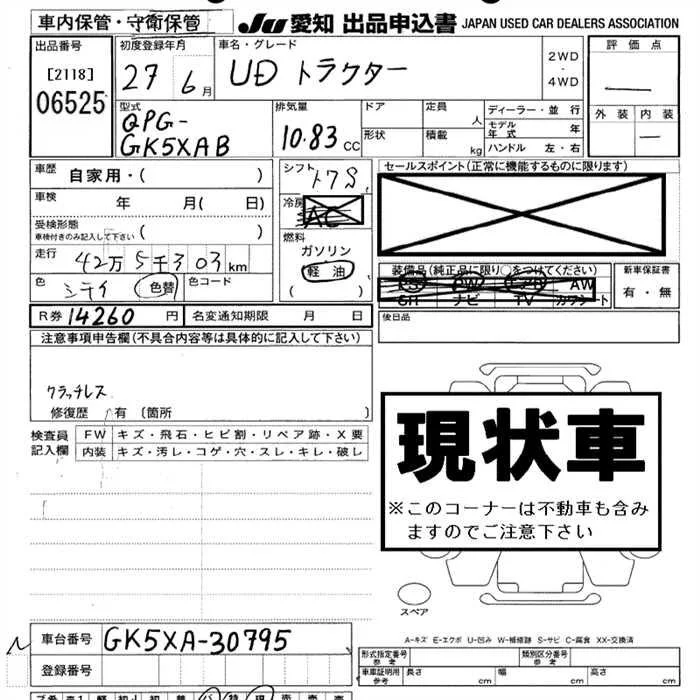 車内保管・守衛保管 JU 愛知 出品申込書 JAPAN USED CAR DEALERS ASSOCIATION
出品番号 初度登録年月 車名・グレード 評価点
[2118] 27 6月 UD トラクター 2WD・4WD
06525 外装 内装
型式 排気量 ドア 定員 人 ディーラー・並行
QPG- 10.83 CC 形状 積載 kg モデル年式 年
GK5XAB ハンドル 左・右
車歴 自家用・( ) シフト 17S セールスポイント(正常に機能するものに限ります)
車検 年 月( 日) 冷房 AC
受検形態 ( ) 燃料
車検付きのみ記入して下さい ガソリン
走行 42万5千303km 軽油 装備品(純正品に限り○をつけてください) 新車保証書
AW 有・無
色 シテイ 色替 色コード ( ) SR ナビ TV カワシート
R券 14260円 名変通知期限 月 日 後日品
注意事項申告欄(不具合内容等は具体的に記入して下さい)
クラッチレス
修復歴 有 〔箇所 〕
検査員 FW キズ・飛石・ヒビ割・リペア跡・X要
記入欄 内装 キズ・汚レ・コゲ・穴・スレ・キレ・破レ
現状車
※このコーナーは不動車も含み
ますのでご注意下さい
スペア
A-キズ E-エクボ U-凹み W-補修跡 S-サビ C-腐食 XX-交換済
車台番号 GK5XA-30795
形式指定番号 参考 類別区分番号 参考
登録番号 車庫証明用 参考 長さ cm 幅 cm 高さ cm